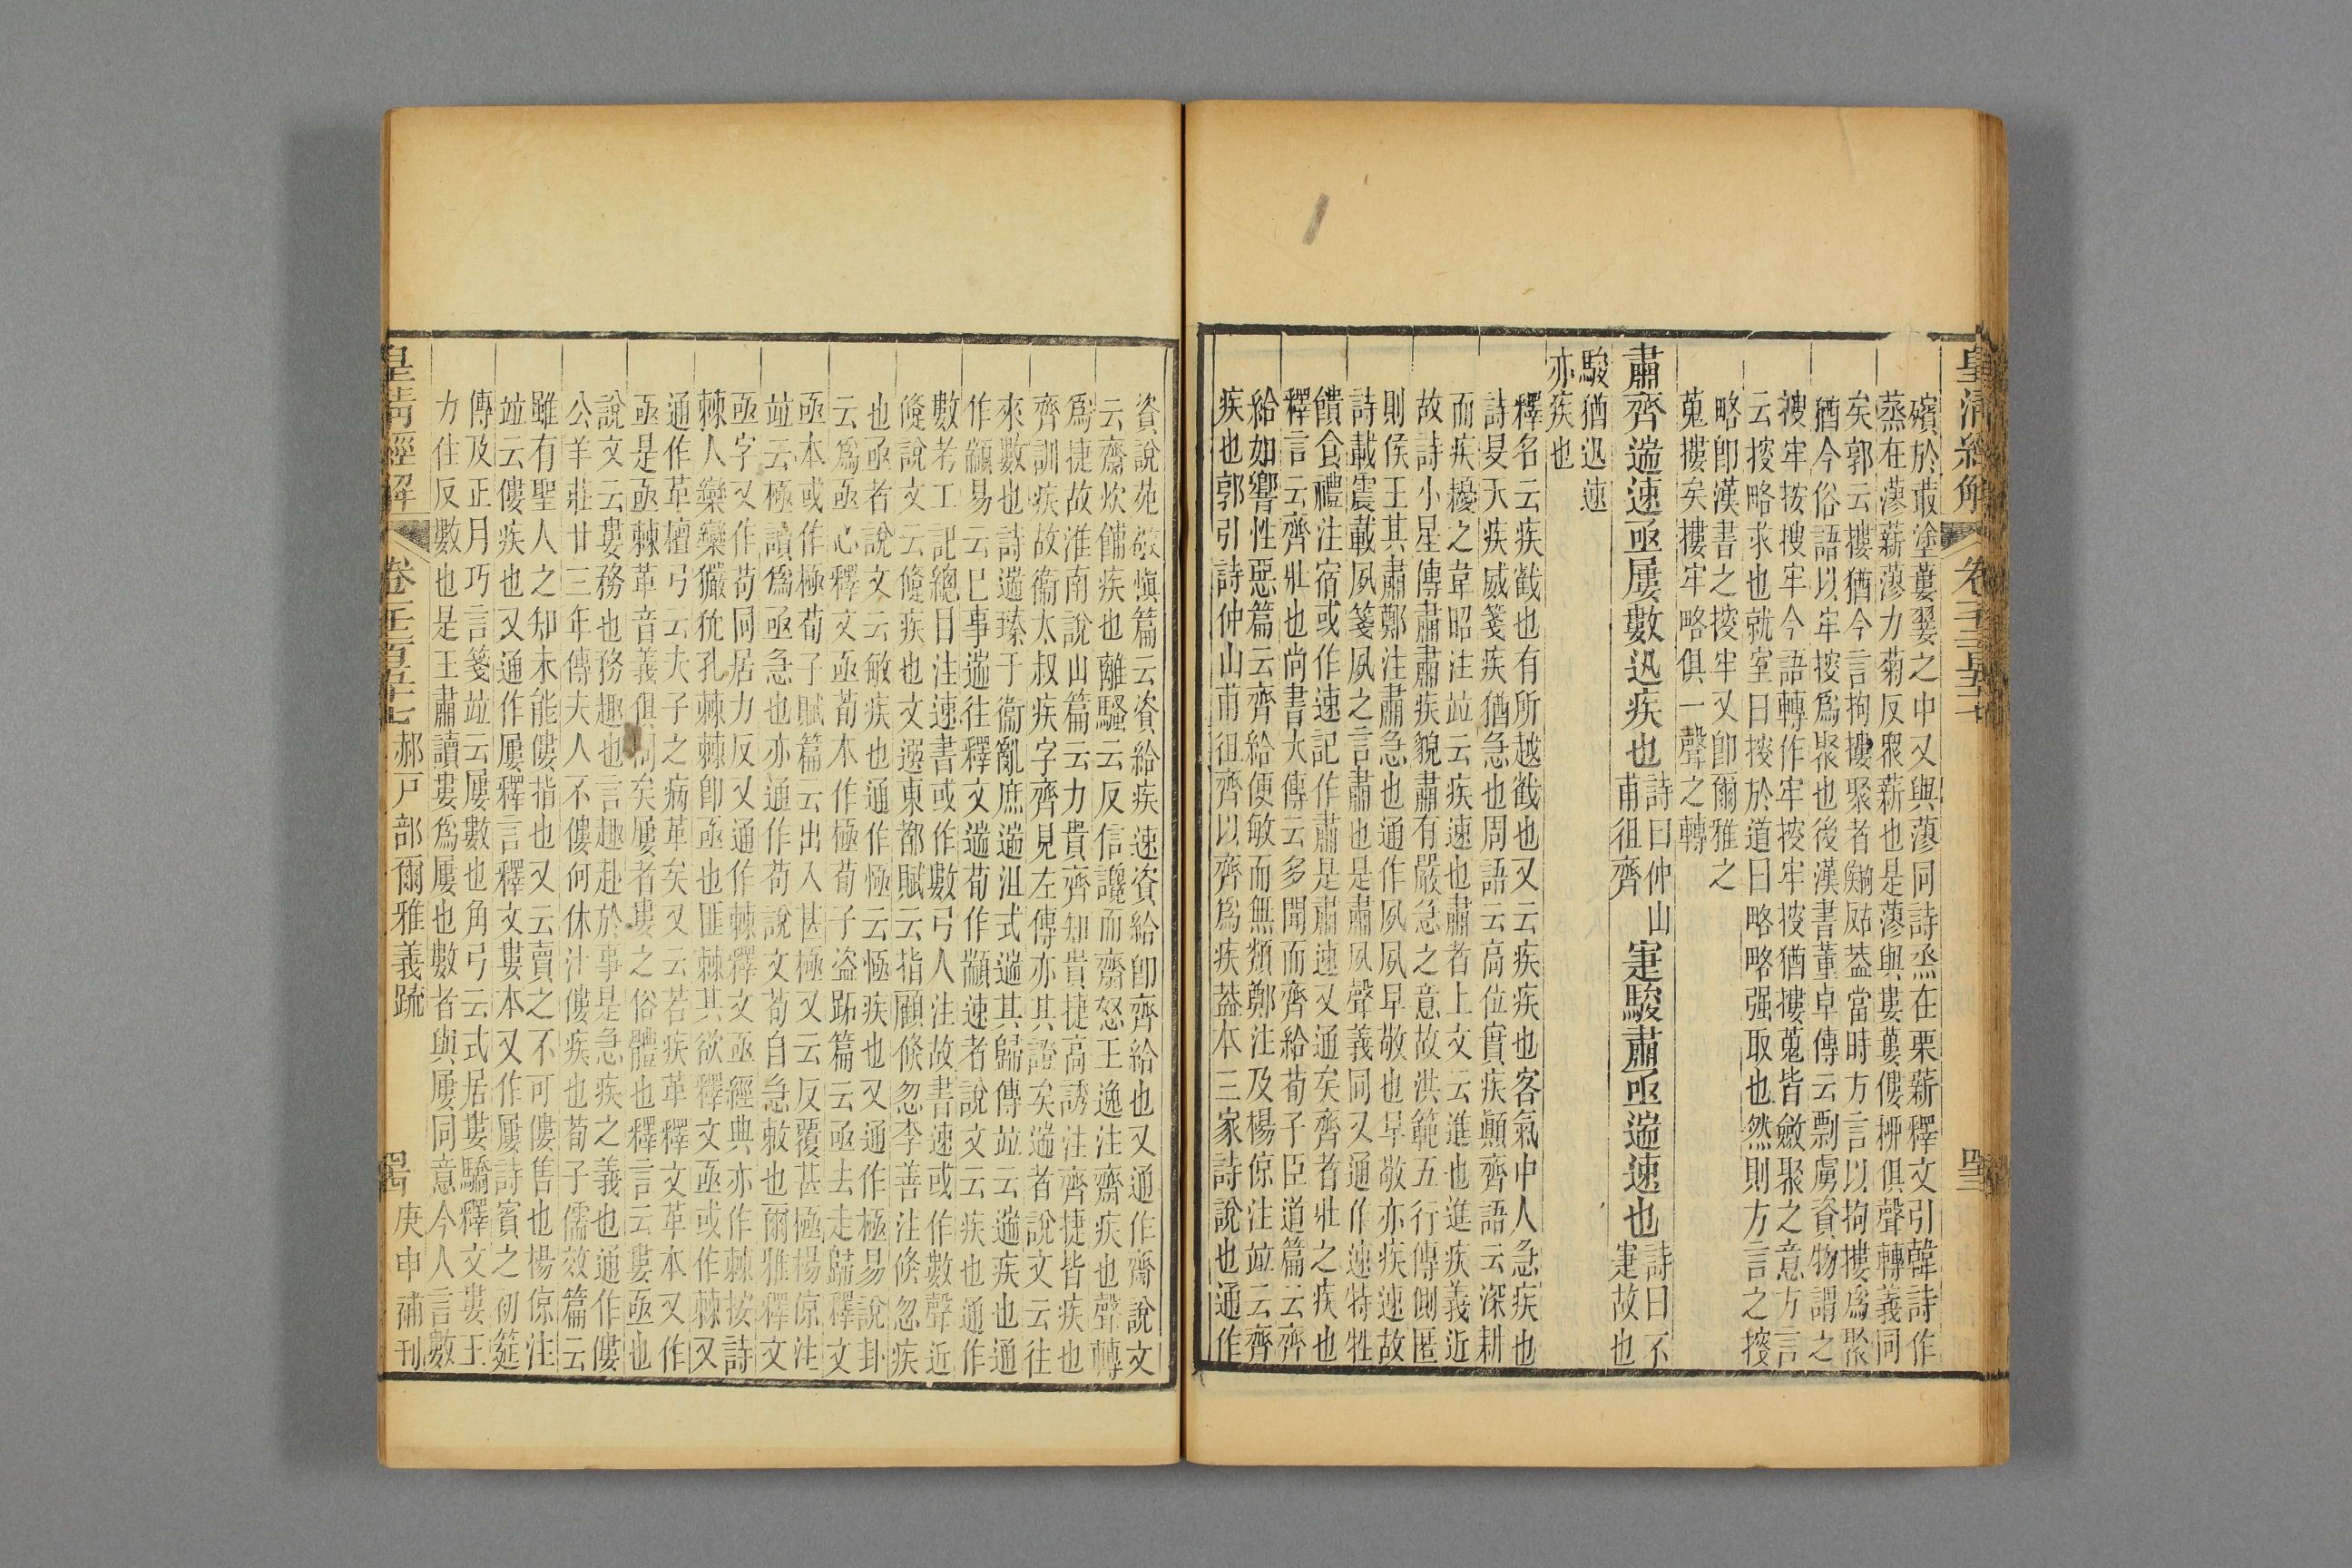 皇清經解
卷千二百五十七
殯於菆塗蔞翣之中又與蓼同詩烝在栗薪釋文引韓詩作
蒸在蓼薪蓼力菊反眾薪也是蓼與婁蔞僂柳俱聲轉義同
矣郭云摟猶今言拘摟聚者蓋當時方言以拘摟爲聚
猶今俗語以牢按爲聚也後漢書董卓傳云剽虜資物謂之
搜牢按搜牢今語轉作牢按牢按猶摟蒐皆斂聚之意方言
云按略求也就室曰按於道曰略略强取也然則方言之按
略卽漢書之按牢又卽爾雅之
蒐摟矣摟牢略俱一聲之轉
肅齊遄速亟屢數迅疾也
詩曰仲山
甫徂齊
寁駿肅亟遄速也
詩曰不
寁故也
駿猶迅速
亦疾也
釋名云疾截也有所越截也又云疾疾也客氣中人急疾也
詩旻天疾威箋疾猶急也周語云高位實疾顚齊語云深耕
而疾耰之韋昭注竝云疾速也肅者上文云進也進疾義近
故詩小星傳肅肅疾貌肅有嚴急之意故洪範五行傳側匿
則侯王其肅鄭注肅急也通作夙夙早敬也早敬亦疾速故
詩載震載夙箋夙之言肅也是肅夙聲義同又通作速特牲
饋食禮注宿或作速記作肅是肅速又通矣齊者壯之疾也
釋言云齊壯也尚書大傳云多聞而齊給荀子臣道篇云齊
給如響性惡篇云齊給便敏而無類鄭注及楊倞注竝云齊
疾也郭引詩仲山甫徂齊以齊爲疾葢本三家詩說也通作
資說苑敬愼篇云資給疾速資給卽齊給也又通作齌說文
云齌炊餔疾也離騷云反信讒而齌怒王逸注齌疾也聲轉
爲捷故淮南說山篇云力貴齊知貴捷高誘注齊捷皆疾也
齊訓疾故衞太叔疾字齊見左傳亦其證矣遄者說文云往
來數也詩遄臻于衞亂庶遄沮式遄其歸傳竝云遄疾也通
作顓易云巳事遄往釋文遄荀作顓速者說文云疾也通作
數考工記總目注速書或作數弓人注故書速或作數聲近
倐說文云倐疾也文選東都賦云指顧倐忽李善注倐忽疾
也亟者說文云敏疾也通作恆云恆疾也又通作極易說卦
云爲亟心釋文亟荀本作極荀子盜跖篇云亟去走歸釋文
亟本或作極荀子賦篇云出入甚極又云反覆甚極楊倞注
竝云極讀爲亟急也亦通作茍說文茍自急敕也爾雅釋文
亟字又作茍同居力反又通作棘釋文亟經典亦作棘按詩
棘人欒欒玁狁孔棘棘卽亟也匪棘其欲釋文亟或作棘又
通作革檀弓云夫子之病革矣又云若疾革釋文革本又作
亟是亟棘革音義俱同矣屢者婁之俗體也釋言云婁亟也
說文云婁務也務趣也言趣赴於事是急疾之義也通作僂
公羊莊廿三年傳夫人不僂何休注僂疾也荀子儒效篇云
雖有聖人之知未能僂指也又云賣之不可僂售也楊倞注
竝云僂疾也又通作屢釋言釋文婁本又作屢詩賓之初筵
傳及正月巧言箋竝云屢數也角弓云式居婁驕釋文婁王
力住反數也是王肅讀婁爲屢也數者與屢同意今人言數
皇淸經解
卷千二百五十七
郝戸部爾雅義疏
庚申補刊